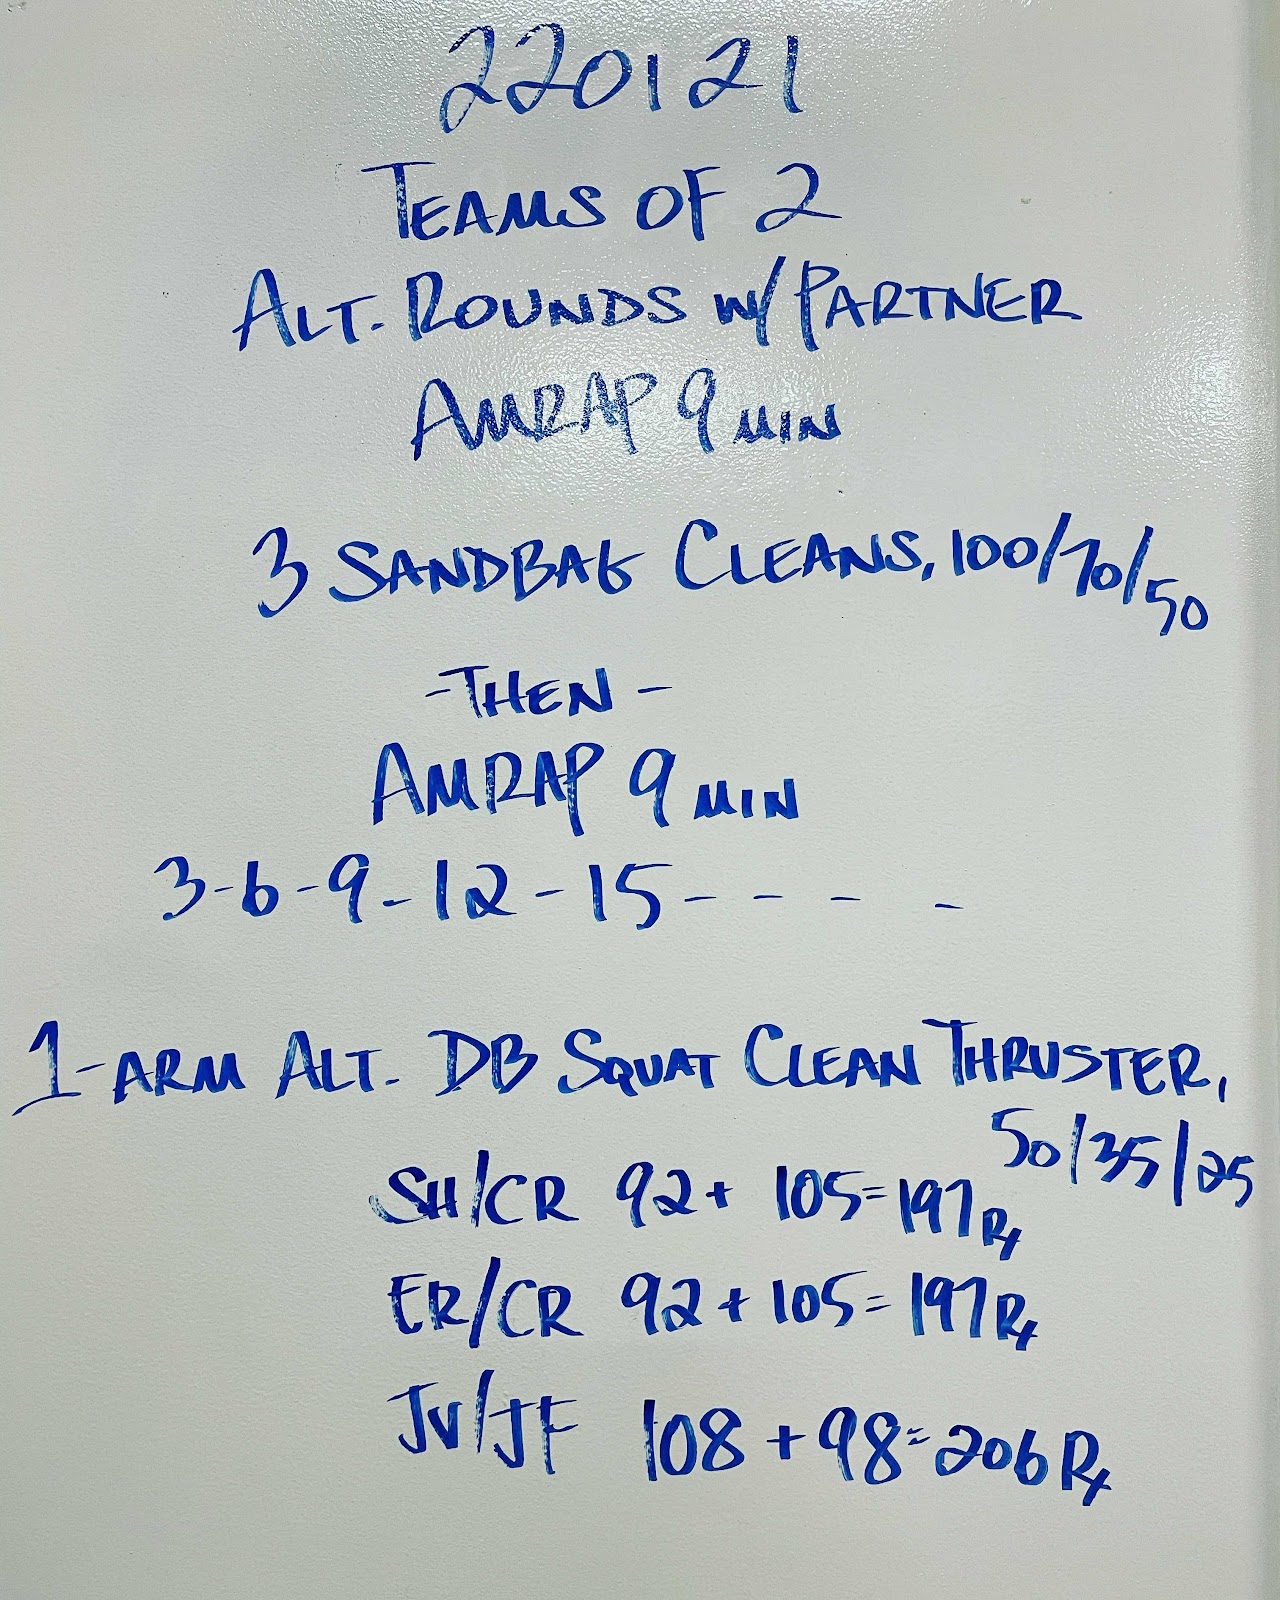 220121
TEAMS OF 2
ALT. ROUNDS W/ PARTNER
AMRAP 9 MIN
3 SANDBAG CLEANS, 100/70/50
-THEN-
AMRAP 9 MIN
3-6-9-12-15- - - -
1-ARM ALT. DB SQUAT CLEAN THRUSTER,
50/35/25
SH/CR 92+ 105=197 Rx
ER/CR 92+105=197 Rx
JV/JF 108+98=206 Rx